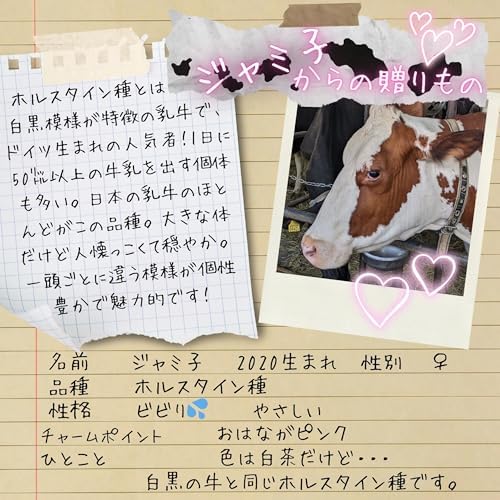 ジャミ子
からの贈りもの
ホルスタイン種とは
白黒模様が特徴の乳牛で、
ドイツ生まれの人気者！1日に
50㍑以上の牛乳を出す個体
も多い。日本の乳牛のほと
んどがこの品種。大きな体
だけど人懐っこくて穏やか。
一頭ごとに違う模様が個性
豊かで魅力的です！
名前 ジャミ子 2020生まれ 性別 ♀
品種 ホルスタイン種
性格 ビビリ💦 やさしい
チャームポイント おはながピンク
ひとこと 色は白茶だけど・・・
白黒の牛と同じホルスタイン種です。